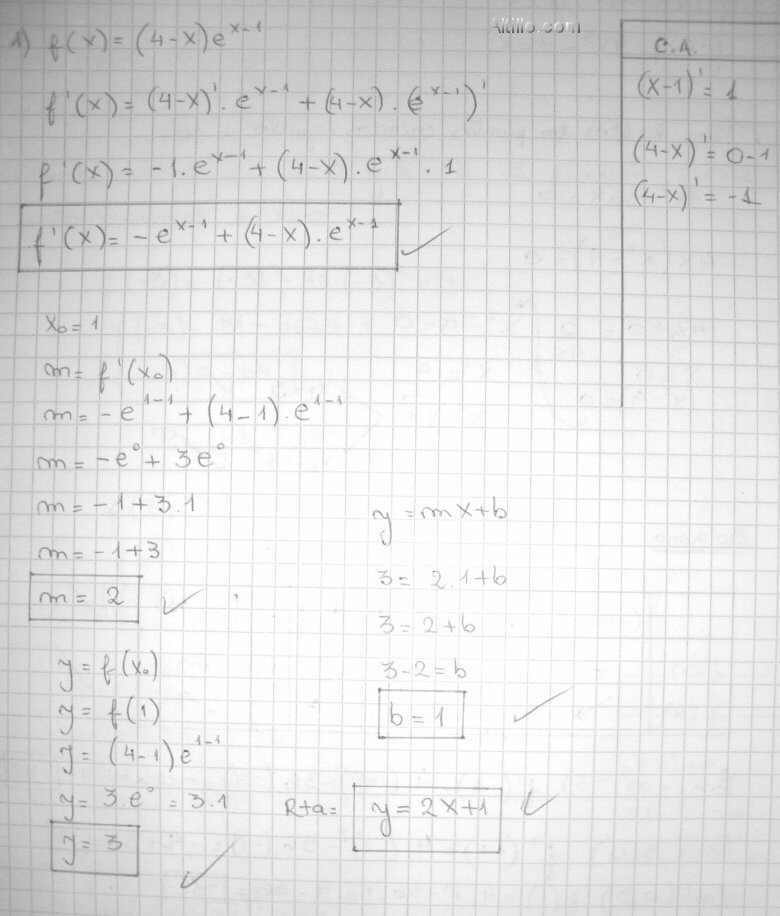 Altillo.com
1) f(x) = (4-x)e^{x-1}
f'(x) = (4-x)'. e^{x-1} + (4-x) . (e^{x-1})'
f'(x) = -1. e^{x-1} + (4-x) . e^{x-1} . 1
f'(x) = -e^{x-1} + (4-x) . e^{x-1}
C.A.
(x-1)' = 1
(4-x)' = 0-1
(4-x)' = -1
x₀ = 1
m = f'(x₀)
m = -e^{1-1} + (4-1) . e^{1-1}
m = -e⁰ + 3e⁰
m = -1+3.1
m = -1+3
m = 2
y = f(x₀)
y = f(1)
y = (4-1)e^{1-1}
y = 3.e⁰ = 3.1
y = 3
y = mx+b
3 = 2.1+b
3 = 2+b
3-2 = b
b = 1
Rta = y = 2x+1